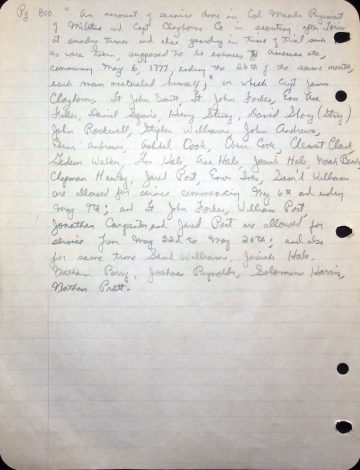 Pg 800 "An account of service done in Col. Meads Regiment
of Militia and Capt Claghorns Co in scouting after Tories
at sundry times and also guarding in time of trial such
as were term, supposed to be enemies to American State,
commencing May 6, 1777, ending the 26th of the same month,
each man victualed himself;" in which Capt James
Claghorn, Lt John Smith, Lt John Forbes, Ens
Fuller, Daniel Squire, Henry Strong, David Story (Story)
John Rockwell, Stephen Williams, John Andrews,
Eben Andrews, Ashbel Cook, Oren Cook, Elemuel Clark,
Gideon Walker, Hale, Asa Hale, Josiah Hale, Noah
Chapman Hawley, Jared Post, Enos Ives, Sam'l Williams
are allowed for service commencing May 6th and ending
May 7th; and Lt John Forbes, William Post,
Jonathan Carpenter and Jared Post are allowed for
service from May 22d to May 26th; and also
for same time Saml Williams, Josiah Hale,
Nathan Perry, Joshua Reynolds, Solomon Harris,
Nathan Pratt.